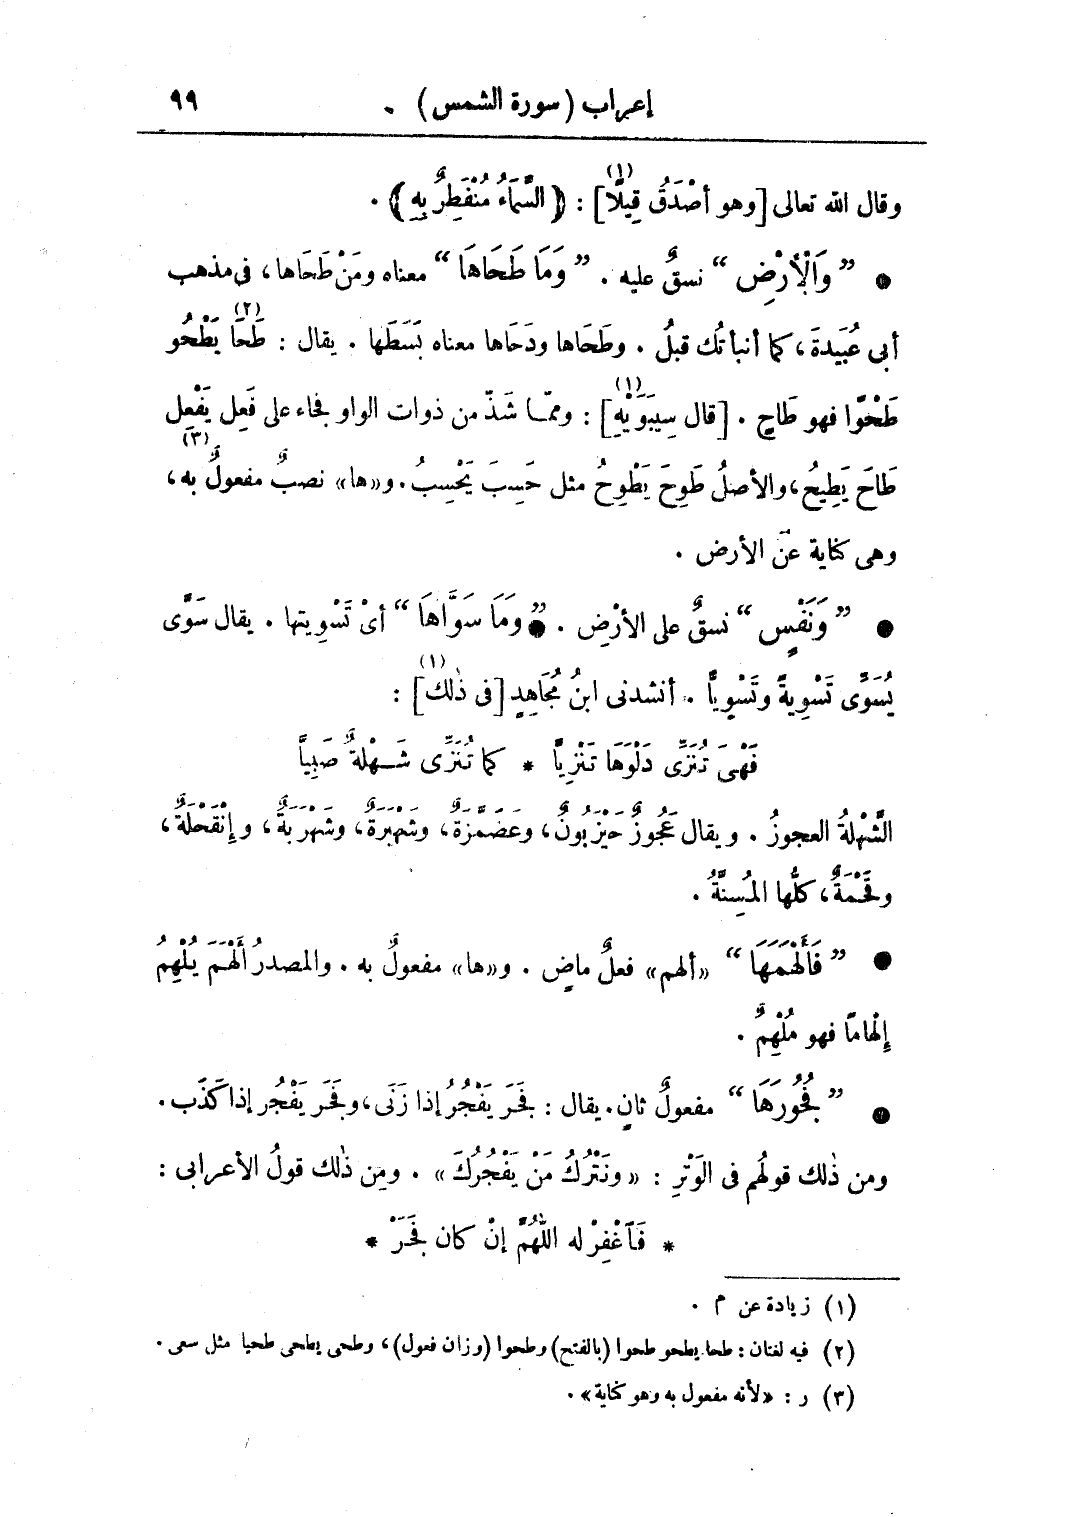 إعراب (سورة الشمس) . ٩٩
وقال الله تعالى [وهو أَصْدَقُ قِيلًا](١) : ﴿السَّمَاءُ مُنْفَطِرٌ بِهِ﴾ .
● ” وَالْأَرْضِ “ نسقٌ عليه . ” وَمَا طَحَاهَا “ معناه ومَنْ طَحَاها ، فى مذهب
أبى عُبَيدةَ ، كما أنبأتُك قبلُ . وطَحَاها ودَحَاها معناه بَسَطَها . يقال : طَحَا(٢) يَطْحُو
طَحْوًا فهو طَاحٍ . [قال سِيبَوَيْهِ](١) : وممّا شَذّ من ذوات الواو فجاء على فَعِل يَفْعِل
طَاحَ يَطِيحُ ، والأصلُ طَوِحَ يَطْوِحُ مثل حَسِبَ يَحْسِبُ . و«ها» نصبٌ مفعولٌ به(٣) ،
وهى كناية عن الأرض .
● ” وَنَفْسٍ “ نسقٌ على الأرْضِ . ● ” وَمَا سَوَّاهَا “ أىْ تَسْوِيتها . يقال سَوَّى
يُسَوِّى تَسْوِيةً وتَسْوِيًّا . أنشدنى ابنُ مُجَاهِدٍ [فى ذٰلك](١) :
فَهْىَ تُنَزِّى دَلْوَهَا تَنْزِيًّا * كما تُنَزِّى شَهْلةٌ صَبِيًّا
الشَّهْلةُ العجوزُ . ويقال عَجُوزٌ حَيْزَبُونٌ ، وعَضَمَّزَةٌ ، وشَهْبَرَةٌ ، وشَهْرَبَةٌ ، وإنْقَحْلةٌ ،
وقَحْمَةٌ ، كلُّها المُسِنَّةُ .
● ” فَأَلْهَمَهَا “ «ألهم» فعلٌ ماضٍ . و«ها» مفعولٌ به . والمصدرُ أَلْهَمَ يُلْهِمُ
إِلْهَامًا فهو مُلْهِمٌ .
● ” فُجُورَهَا “ مفعولٌ ثانٍ . يقال : فَجَرَ يَفْجُرُ إذا زَنَى ، وفَجَرَ يَفْجُر إذا كَذَب .
ومن ذٰلك قولُهم فى الوَتْرِ : «ونَتْرُكُ مَنْ يَفْجُرُكَ» . ومِن ذٰلك قولُ الأعرابى :
* فَٱغْفِرْ له اللّٰهُمَّ إنْ كان فَجَرْ *
(١) زيادة عن م .
(٢) فيه لغتان : طحا يطحو طحوا (بالفتح) وطحوا (وزان فعول) ، وطحى يطحى طحيا مثل سعى .
(٣) ر : «لأنه مفعول به وهو كناية» .